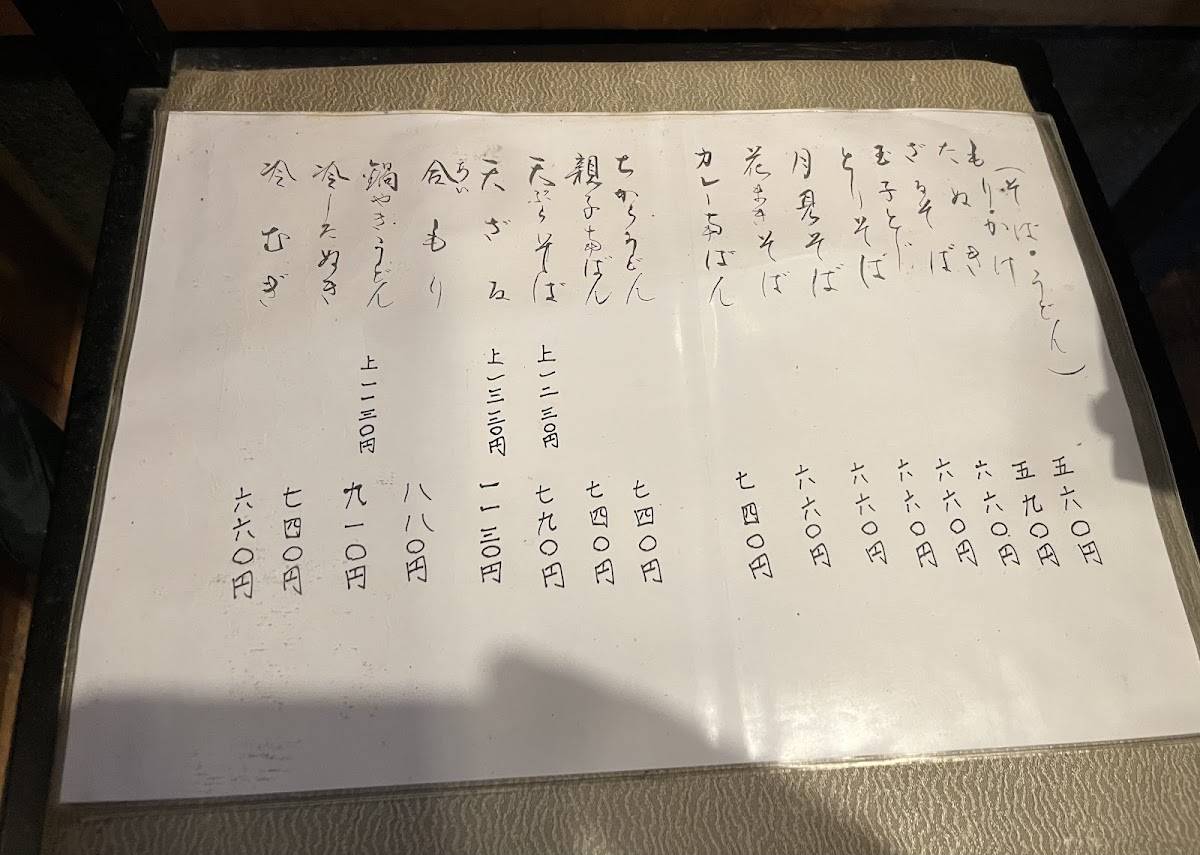 （そば・うどん）
もり・かけ 五六〇円
たぬき 五九〇円
ざるそば 六六〇円
玉子とじ 六六〇円
とりそば 六六〇円
月見そば 六六〇円
花まきそば 六六〇円
カレー南ばん 七四〇円
ちからうどん 七四〇円
親子南ばん 七四〇円
天ぷらそば 上一二三〇円 七九〇円
天ざる 上一三三〇円 一一三〇円
合もり 八八〇円
鍋やきうどん 上一一三〇円 九一〇円
冷したぬき 七四〇円
冷むぎ 六六〇円